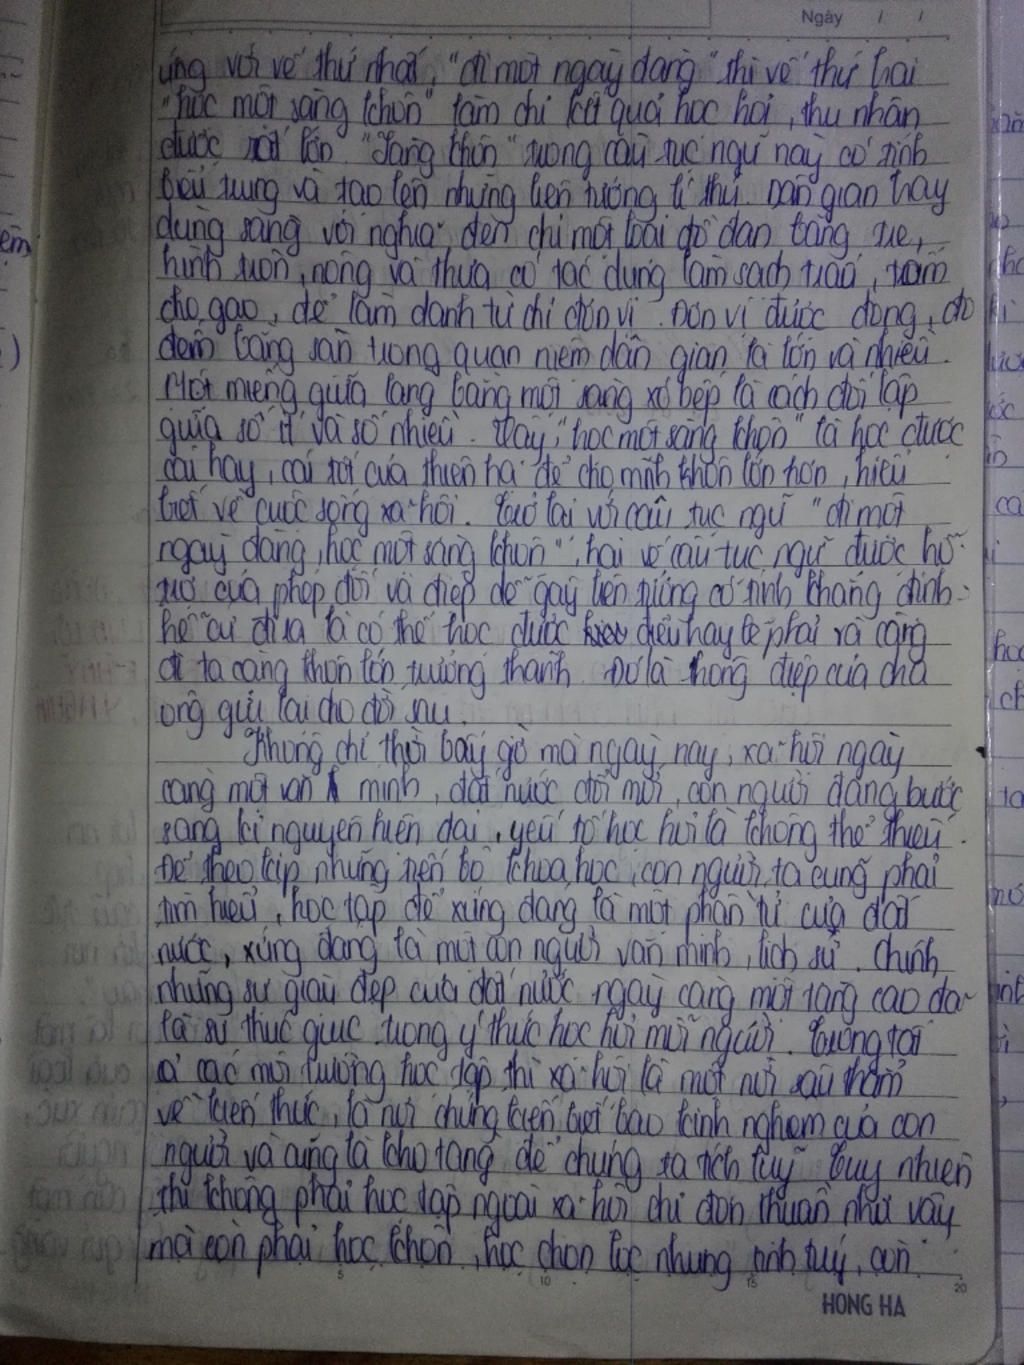 Ngày / /
ứng với vế thứ nhất, "đi một ngày đàng" thì vế thứ hai
"học một sàng khôn" làm chỉ kết quả học hỏi, thu nhận
được rất lớn. "Sàng khôn" trong câu tục ngữ này có tính
biểu trưng và tạo lên những liên tưởng lí thú. Dân gian hay
dùng sàng với nghĩa đen chỉ một loại đồ đan bằng tre,
hình tròn, nông và thưa có tác dụng làm sạch trấu, tấm
cho gạo, để làm danh từ chỉ đơn vị. Đơn vị được đong, đo
đếm bằng sàn trong quan niệm dân gian là lớn và nhiều.
Một miếng giữa làng bằng một sàng xó bếp là cách đối lập
giữa số ít và số nhiều. Vậy, "học một sàng khôn" là học được
cái hay, cái tốt của thiên hạ để cho mình khôn lớn hơn, hiểu
biết về cuộc sống xã hội. Trở lại với câu tục ngữ "đi một
ngày đàng, học một sàng khôn", hai vế câu tục ngữ được hỗ
trợ của phép đối và điệp để gây lên tiếng có tính khẳng định
hễ cứ đi xa là có thể học được điều hay lẽ phải và càng
đi ta càng khôn lớn, trưởng thành. Đó là thông điệp của cha
ông gửi lại cho đời sau.
Không chỉ thời bấy giờ mà ngày nay, xã hội ngày
càng một văn minh, đất nước đổi mới, con người đang bước
sang kỉ nguyên hiện đại, yếu tố học hỏi là không thể thiếu.
Để theo kịp những tiến bộ khoa học, con người ta cũng phải
tìm hiểu, học tập để xứng đáng là một phần tử của đất
nước, xứng đáng là một con người văn minh, lịch sử. Chính
những sự giàu đẹp của đất nước ngày càng một tăng cao đó
là sự thúc giục trong ý thức học hỏi mỗi người. Tương tới
ở các môi trường học tập thì xã hội là một nơi sâu thẳm
về kiến thức, là nơi chứng kiến biết bao kinh nghiệm của con
người và cũng là kho tàng để chúng ta tích luỹ. Tuy nhiên
thì không phải học tập ngoài xã hội chỉ đơn thuần như vậy
mà còn phải học khôn, học chọn lọc những tinh tuý, còn
5 10 15 20
HONG HA